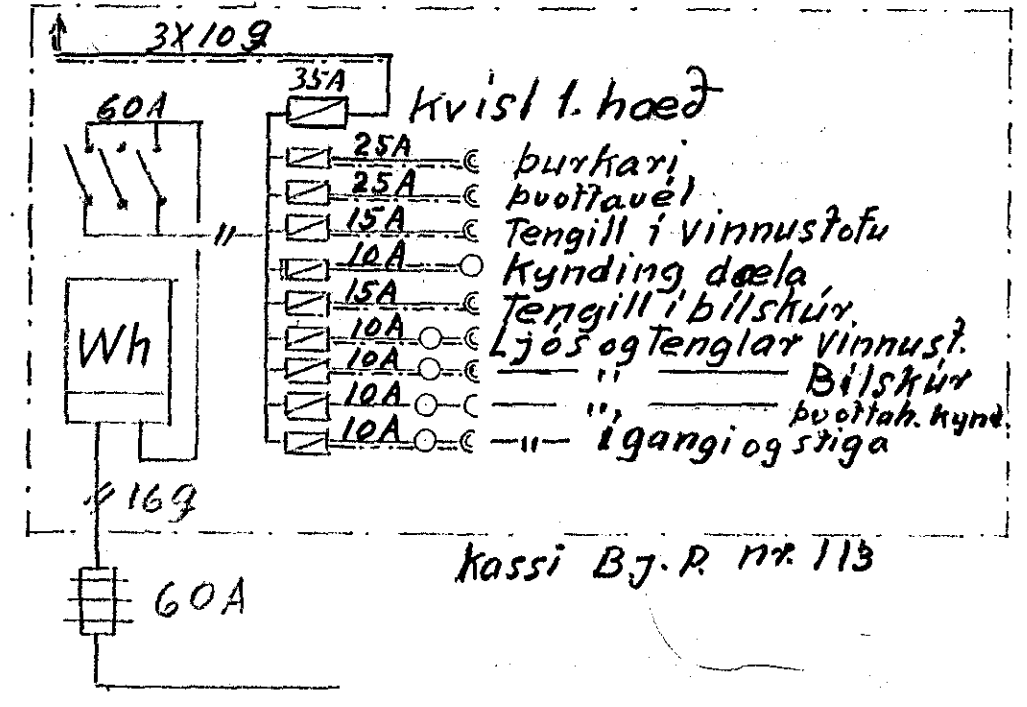 3X10q
35A kvisl 1. hæð
60A
25A þurkari
25A þvottavél
15A Tengill í vinnustofu
10A kynding dæla
15A Tengill í bílskúr
10A Ljós og Tenglar vinnust.
10A — " — Bílskúr
10A — " — þvottah. kynd.
10A — " — í gangi og stiga
Wh
16q
kassi B.J.P. nr. 113
60A